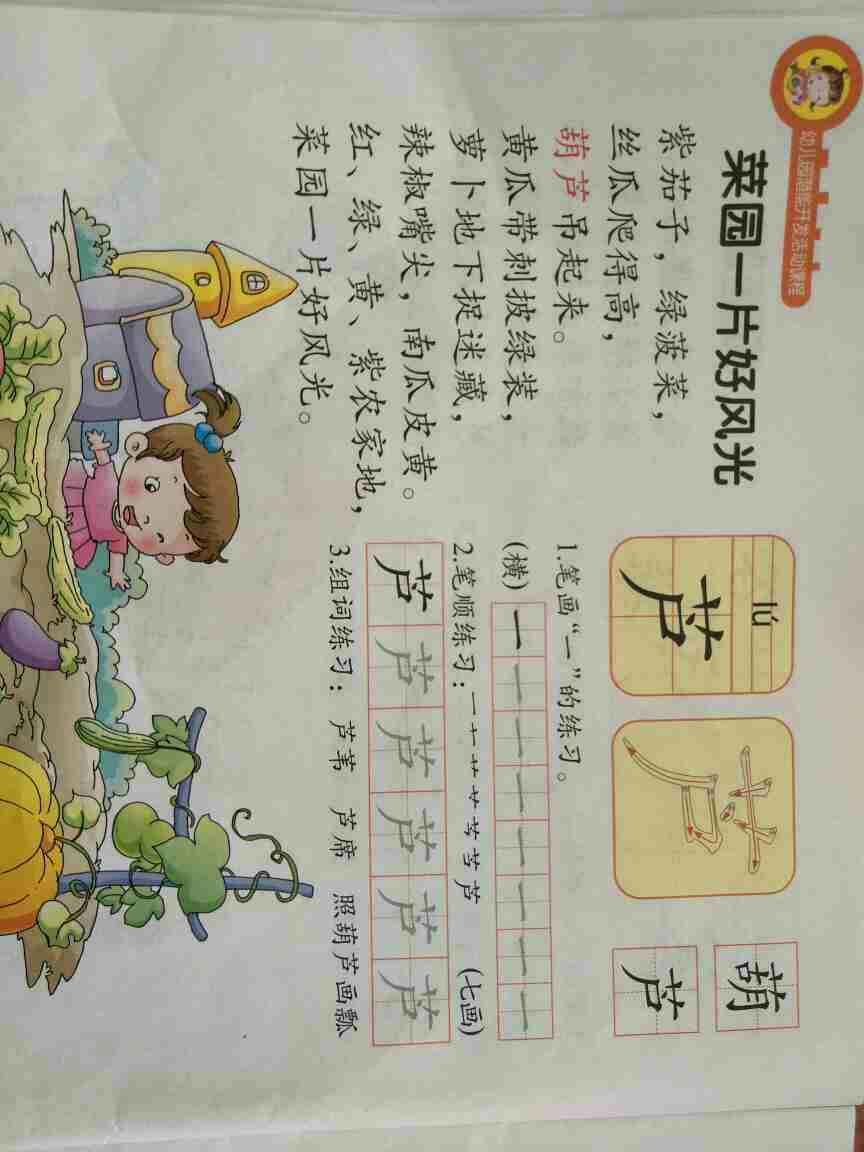 幼儿园潜能开发活动课程
菜园一片好风光
紫茄子，绿菠菜，
丝瓜爬得高，
葫芦吊起来。
黄瓜带刺披绿装，
萝卜地下捉迷藏，
辣椒嘴尖，南瓜皮黄。
红、绿、黄、紫农家地，
菜园一片好风光。
lú
芦
芦
葫
芦
1.笔画“一”的练习。
(横) 一 一 一 一 一 一 一 一
2.笔顺练习：一 十 艹 艹 艹 芦 芦 (七画)
芦 芦 芦 芦 芦 芦
3.组词练习：芦苇 芦席 照葫芦画瓢